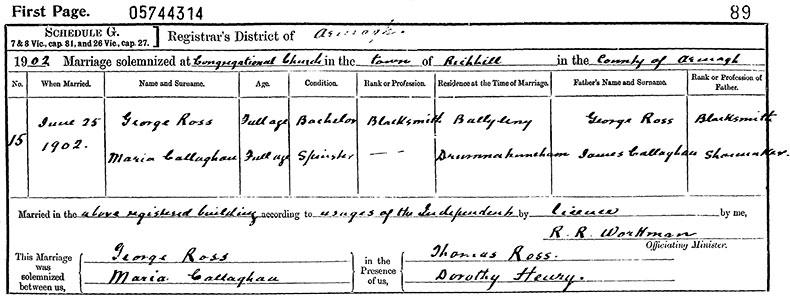 First Page. 05744314 89
SCHEDULE G.
7 & 8 Vic., cap. 81, and 26 Vic., cap. 27.
Registrar's District of Armagh
1902 Marriage solemnized at Congregational Church in the town of Richhill in the County of Armagh
No. When Married. Name and Surname. Age. Condition. Rank or Profession. Residence at the Time of Marriage. Father's Name and Surname. Rank or Profession of Father.
15 June 25 1902. George Ross Full age Bachelor Blacksmith Ballyleny George Ross Blacksmith
Maria Callaghan Full age Spinster — Drumnahuncheon James Callaghan Shoemaker.
Married in the above registered building according to usages of the Independents by licence by me,
R. R. Workman
Officiating Minister.
This Marriage was solemnized between us,
George Ross
Maria Callaghan
in the Presence of us,
Thomas Ross.
Dorothy Henry.